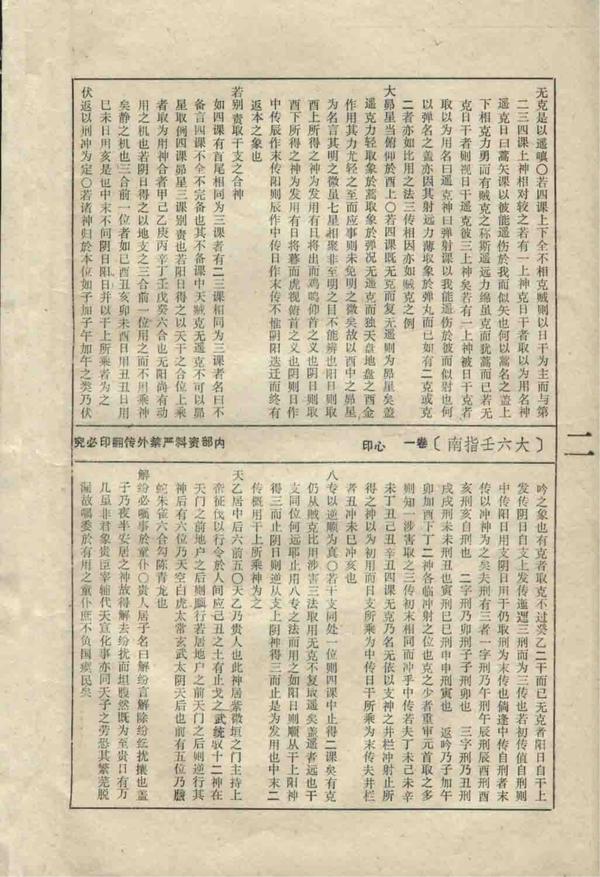 无克是以遥嗔〇若四课上下全不相克贼则以日干为主而与第
二三四课上神相对较之若有一上神克日干者取以为用名神
遥克日曰蒿矢课以彼能遥伤於我而似矢也何以蒿名之盖上
下相克力勇而有贼克之称斯遥远力绵虽克而犹蒿而已若无
克日干者则视日干遥克彼三上神矣若有一上神被日干克者
取以为用名曰遥克神曰弹射课以我能遥伤於彼而似尉也何
以弹名之盖亦因其射远力薄取象於弹丸而已如有二克或克
二者亦如比用之法三传相因亦如贼克之例
大昴星当俯仰於酉上〇若四课既无克而复无遥则为昴星矣盖
遥克力轻取象於蒿取象於弹况无遥克而独天盘地盘之酉金
作用其力尤轻之至而应事则未免明之微矣故以酉中之昴星
为名言其明之微星七星相聚非至明之目不能辨也阳日则取
酉上所得之神为发用有日将出而鸡鸣仰首之义也阴日则取
酉下所得之神为发用有日将暮而虎视俯首之义也阴则日作
中传辰作末传阳则辰作中传日作末传不惟阴阳迭迁而终有
返本之象也
若别责取干支之合神
如四课有首尾相同为三课者有二三课相同为三课者名曰不
备言四课不全不完备也其不备课中天贼克无遥克不可以昴
星取例四课昴星三课别责也若阳日得之以天干之合位上乘
者取为用神合者甲己乙庚丙辛丁壬戊癸六合也无阳尚有动
用之机也若阴日得之以地支之三合前一位用之而不用乘神
矣静之机也三合前一位者如巳酉丑亥卯未酉日用丑丑日用
巳未日用亥是也中末不问阴日阳日并以干上所乘者为之
伏返以刑冲为定〇若诸神归於本位如子加子午加午之类乃伏
二一
大六壬指南〔卷一 心印
内部资料严禁外传翻印必究
吟之象也有克者取克不过癸乙二干而已无克者阳日自干上
发传阴日自支上发传逦迤三刑而为三传也若初传值自刑则
中传阳日用支阴日用干仍取刑为末传也倘逢中传自刑者末
传以冲神为之矣夫刑有三者一字刑乃午刑午辰刑辰酉刑酉
亥刑亥自刑也 二字刑乃卯刑子子刑卯也 三字刑乃丑刑
戌戌刑未未刑丑也寅刑巳巳刑申申刑寅也 返吟乃子加午
卯加酉下丁二神各临冲射之位也克之少者重审元首取之多
则知一涉害取之三传初末相同而冲乎中传若夫丁未己未辛
未丁丑己丑辛丑四课无克乃名无依以支神之井栏冲射止所
得之神以为初用而日支所乘为中传日干所乘为末传夫井栏
者丑冲未巳冲亥也
八专以逆顺为真〇若干支同处一位则四课中止得二课矣有克
仍从贼克比用涉害三法取用无克不复取遥矣盖遥者远也干
支同位何远耶止用八专之法而用之如阳日则顺从干上阳神
得三而止阴日则逆从支上阴神得三而止是为发用也中末二
传概用干上所乘神为之
天乙居中后六前五〇天乙乃贵人也此神居紫微垣之门主持上
帝征伐以行令於人间应己丑之土有止戈之武统驭十二神在
天门之前地户之后则顺行若居地户之前天门之后则逆行其
神后有六位乃天空白虎太常玄武太阴天后也前有五位乃螣
蛇朱雀六合勾陈青龙也
解纷必嘱事於童仆〇贵人居子名曰解纷言解除纷纭扰攘也盖
子乃夜半安居之神故得解去纷扰而坦腹然既为至贵日有万
几虽非君象究属臣宰辅佐代天宣化事亦同天子之劳恐其繁芜脱
漏故嘱委於有用之童仆庶不负国瘼民矣